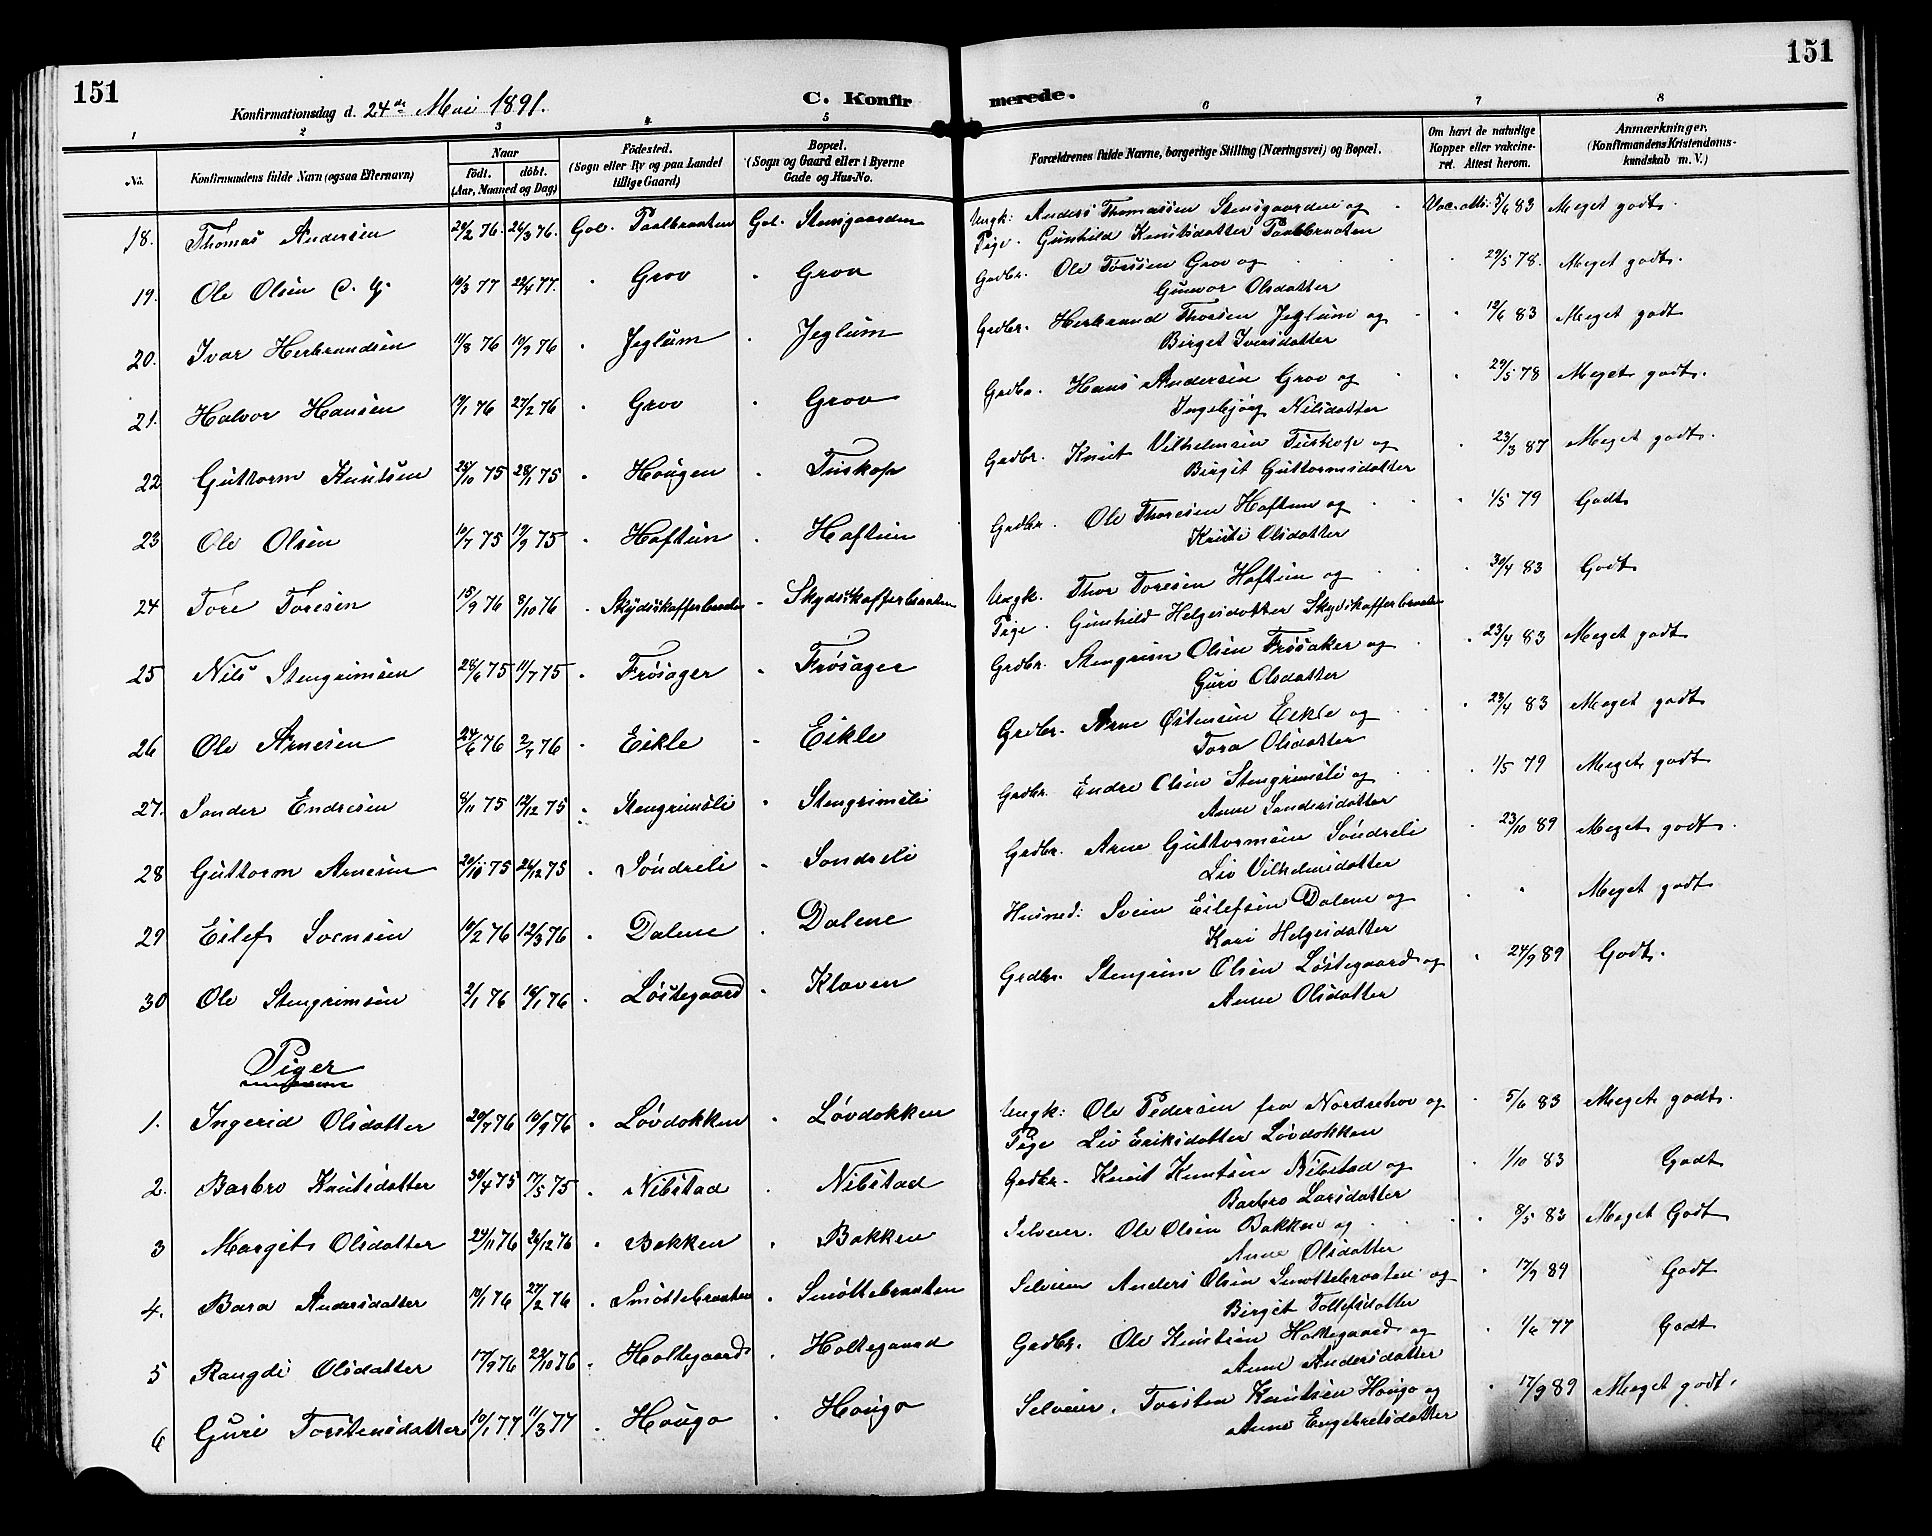 151
151
Konfirmationsdag d. 24de Mai 1891.
C. Konfirmerede.
1 2 3 4 5 6 7 8
No. Konfirmandens fulde Navn (ogsaa Efternavn) Naar födt. döbt. (Aar, Maaned og Dag) Födested. (Sogn eller By og paa Landet tillige Gaard) Bopæl. (Sogn og Gaard eller i Byerne Gade og Hus-No. Forældrenes fulde Navne, borgerlige Stilling (Næringsvei) og Bopæl. Om havt de naturlige Kopper eller vakcineret. Attest herom. Anmærkninger. (Konfirmandens Kristendomskundskab m. V.)
18. Thomas Andersen 76. 26/3 76. Gol. Paalbraaten Gol. Stensgaarden Ungk: Anders Thomassen Stensgaarden og Vac. att: 5/6 83 Meget godt.
Pige. Gunhild Knutsdatter Paalbraaten
19. Ole Olsen d. y. 10/3 77 22/4 77. " Grov " Grov Gadbr. Ole Torssen Grov og 29/5 78. Meget godt.
Gunvor Olsdatter
20. Ivar Herbrandsen 11/8 76 10/9 76 " Jeglum " Jeglum Grdbr. Herbrand Thorsen Jeglum og " 12/6 83 Meget godt
Birget Iversdatter
21. Halvor Hansen 19/1 76 27/2 76 " Grov " Grov Grdbr. Hans Andersen Grov og " 29/5 78 Meget godt.
Ingebjørg Nilsdatter
22 Guttorm Knutsen 75 75 " Hougen " Tuskop Grdbr. Knut Vilhelmsen Tuskop og " 23/3 87 Meget godt.
Birgit Guttormsdatter
23 Ole Olsen 10/7 75 19/9 75 " Haftun " Haftun Grdbr. Ole Thoresen Haftun og " 1/5 79 Godt
Kristi Olsdatter
24 Tore Toresen 15/9 76 8/10 76 " Skydskafferbraaten " Skydskafferbraaten Ungk. Thor Toresen Haftun og " 30/4 83 Godt
Pige. Gunhild Helgesdatter Skydskafferbraaten
25 Nils Stengrimsen 28/6 75 11/7 75 " Frøsager " Frøsager Grdbr. Stengrim Olsen Frøsaker og " 23/4 83 Meget godt
Guri Olsdatter
26 Ole Arnesen 24/6 76 2/7 76 " Eikle " Eikle Grdbr. Arne Østensen Eikle og " 23/4 83 Meget godt
Tora Olsdatter
27. Sander Endresen 8/11 75 12/12 75 " Stengrimsli " Stengrimsli Grdbr. Endre Olsen Stengrimsli og " 1/5 79 Meget godt
Anne Sandersdatter
28 Guttorm Arnesen 20/10 75 26/12 75 " Søndreli " Sondreli Grdbr. Arne Guttormsen Søndreli " 23/10 89 Meget godt.
Liv Vilhelmsdatter
29 Eilef Svensen 10/2 76 12/3 76 " Dalene " Dalene Husmd: Svein Eilefsen Dalene og " " Meget godt
Kari Helgesdatter
30 Ole Stengrimsen 2/1 76 16/1 76 " Løstegaard " Kloven Grdbr. Stengrim Olsen Løstegaard og " 24/9 89 Godt.
Anne Olsdatter
Piger
1. Ingerid Olsdatter 20/7 76 10/9 76 " Løvdokken " Løvdokken Ungk: Ole Pedersen fra Nordrehov og " 5/6 83 Meget godt.
Pige Liv Eriksdatter Løvdokken
2. Barbro Knutsdatter 30/4 75 17/5 75 " Nibstad " Nibstad Gadbr. Knut Knutsen Nibstad og " 1/10 83 Godt
Barbro Larsdatter
3 Margit Olsdatter 24/11 76 26/12 76 " Bakken " Bakken Selveier. Ole Olsen Bakken og " 8/5 83 Meget Godt
Anne Olsdatter
4. Bara Andersdatter 10/1 76 27/2 76 " Smøttebraaten " Smøttebraaten Selveier Anders Olsen Smøttebraaten og " 17/9 89 Godt
Birgit Tollefsdatter
5 Rangdi Olsdatter 17/9 76 22/10 76 " Holtegaard " Holtegaard Gadbr. Ole Knutsen Holtegaard og " 1/6 77 Godt
Anne Andersdatter
6 Guri Torstensdatter 10/1 77 11/3 77 " Hougo " Hougo Selveier. Torsten Knutsen Hougo og " 17/9 89 Meget godt.
Anne Engebretsdatter